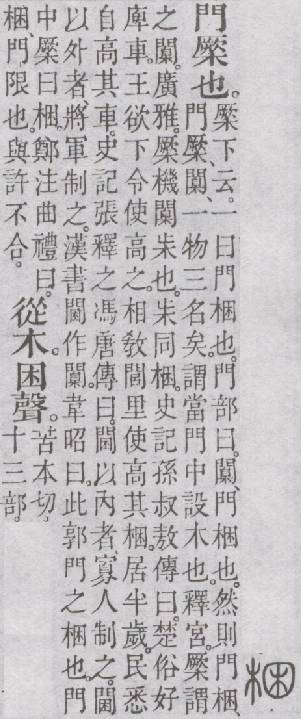 梱
門橜也。
橜下云。一曰門梱也。門部曰。闑、門梱也。然則門梱、
門橜、闑、一物三名矣。謂當門中設木也。釋宮。橜謂
之闑。廣雅。橜機闑朱也。朱同梱。史記孫叔敖傳曰。楚俗好
庳車。王欲下令使高之。相教閭里使高其梱。居半歲。民悉
自高其車。史記張釋之馮唐傳曰。閫以內者、寡人制之。閫
以外者、將軍制之。漢書閫作闑。韋昭曰。此郭門之梱也。門
中橜曰梱。鄭注曲禮曰。
梱、門限也。與許不合。
從木。困聲。
苦本切。
十三部。